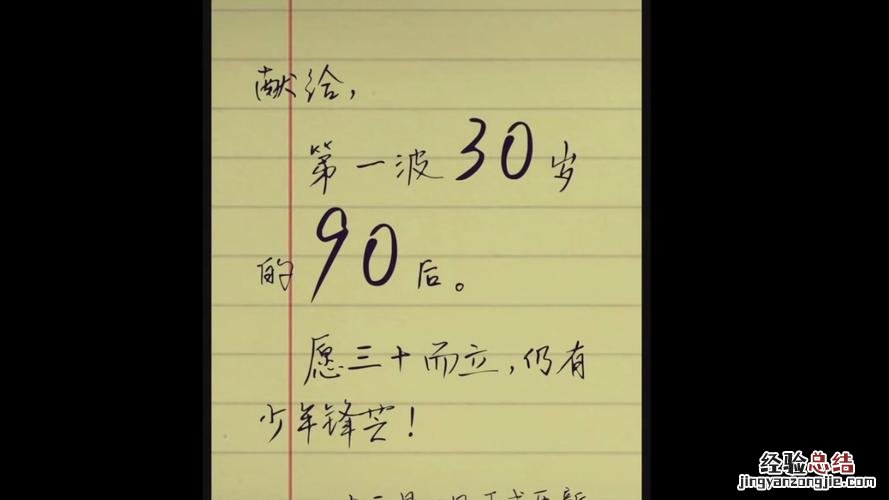 献给，
第一波30岁
的90后。
愿三十而立，仍有
少年锋芒！
经验总结
jingyanzongjie.com